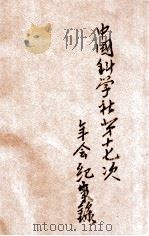 中國科学社第十七次
年会纪事錄